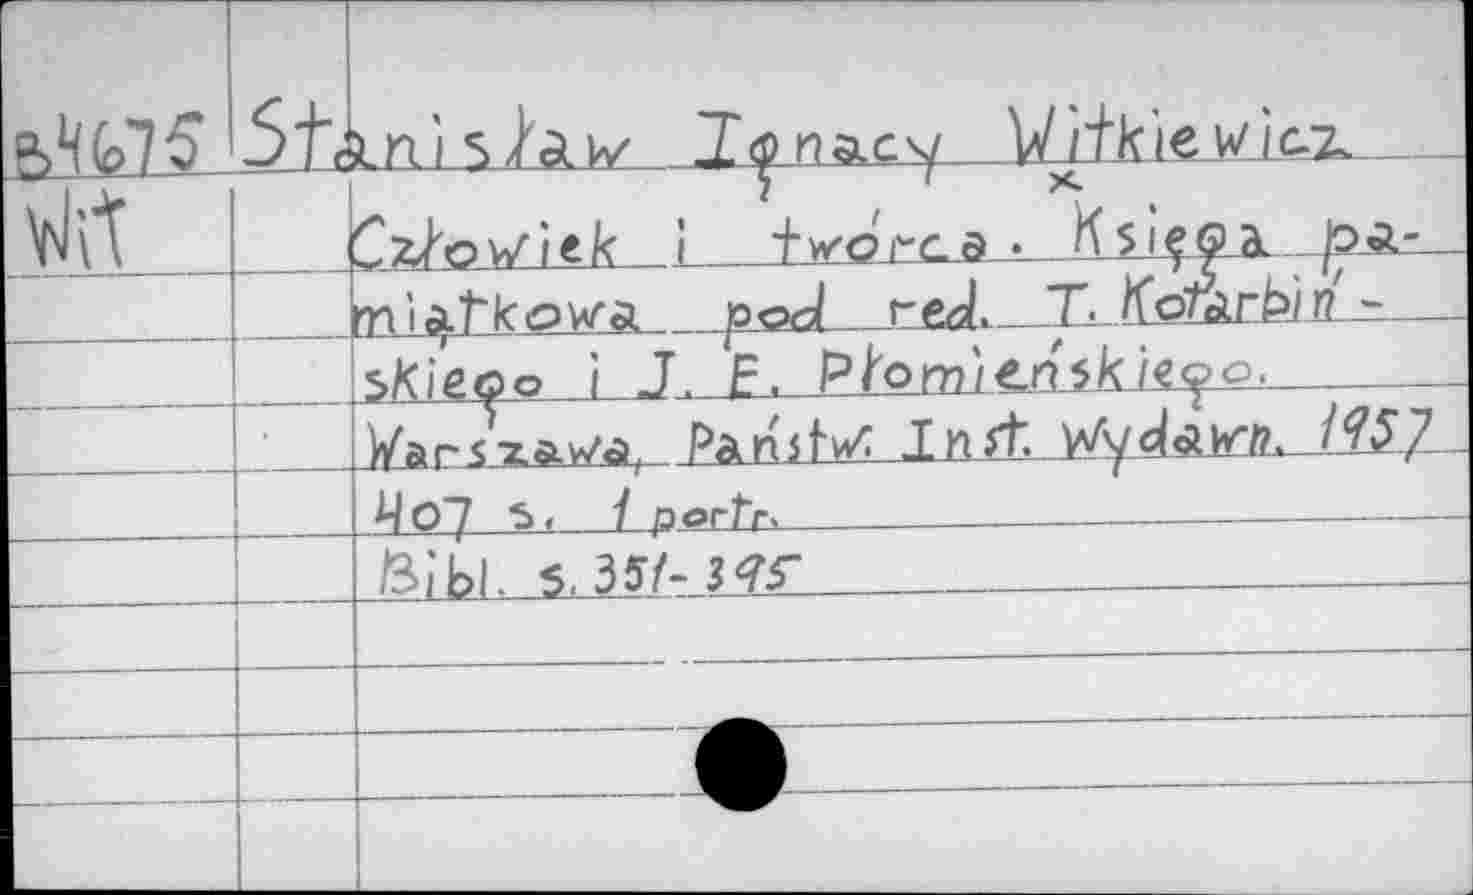 B4675 Stanisław Ignacy Witkiewicz
Wit Człowiek i twórca. Księga pa-
miątkowa pod red. T. Kotarbiń-
skiego i J. E. Płomieńskiego.
Warszawa, Państw. Inst. Wydawn. 1957
407 s. 1 portr.
Bibl. s. 351-395